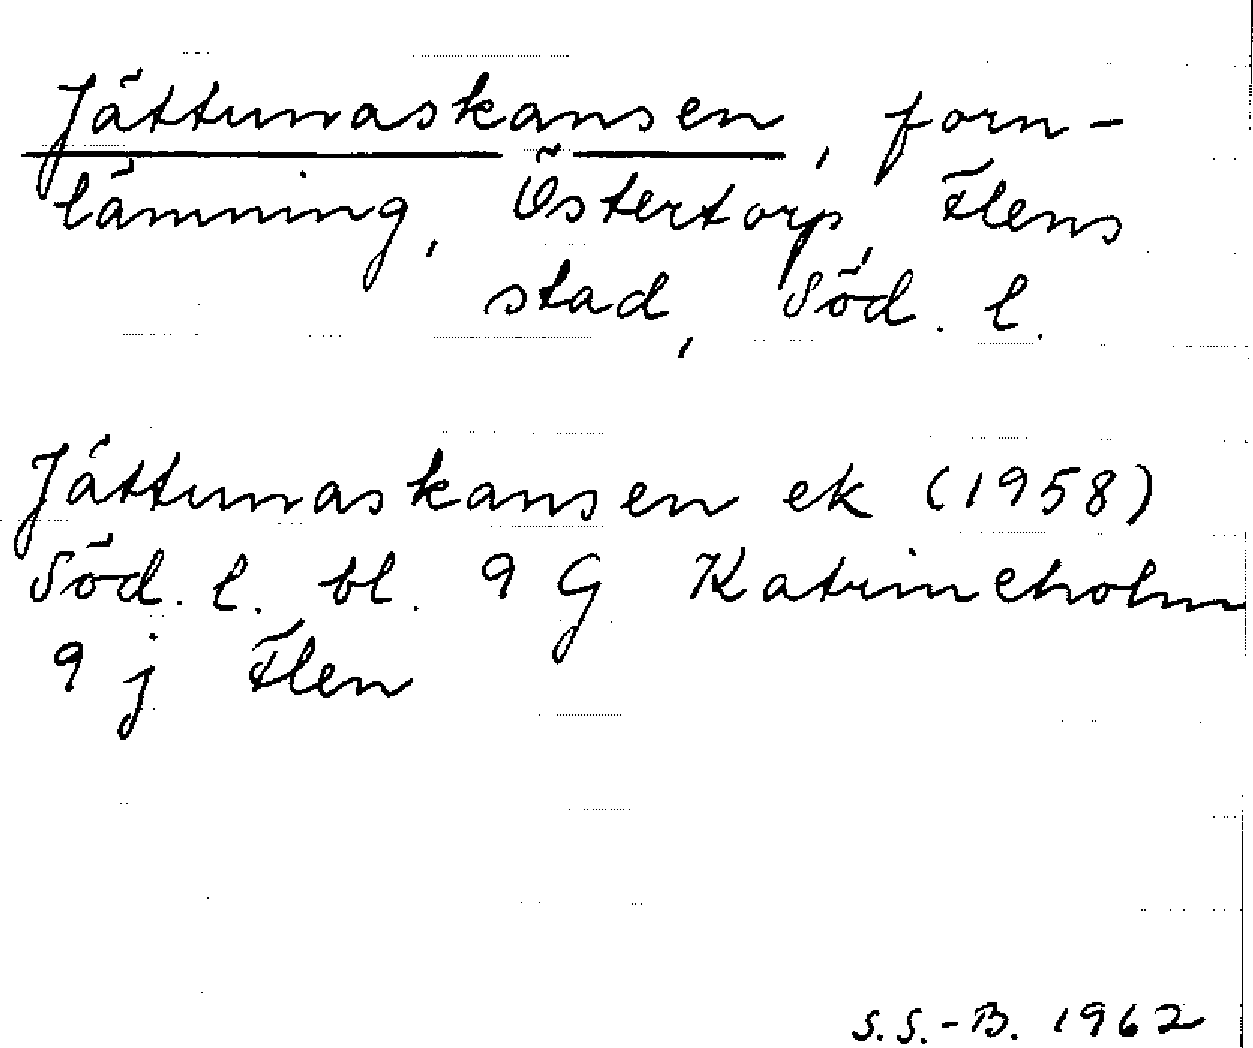 Jättunaskansen, forn-
lämning, Östertorp, Flens
stad, Söd. l.
Jättunaskansen ek (1958)
Söd. l. bl. 9 G Katrineholm
9 j Flen
S.S.-B. 1962